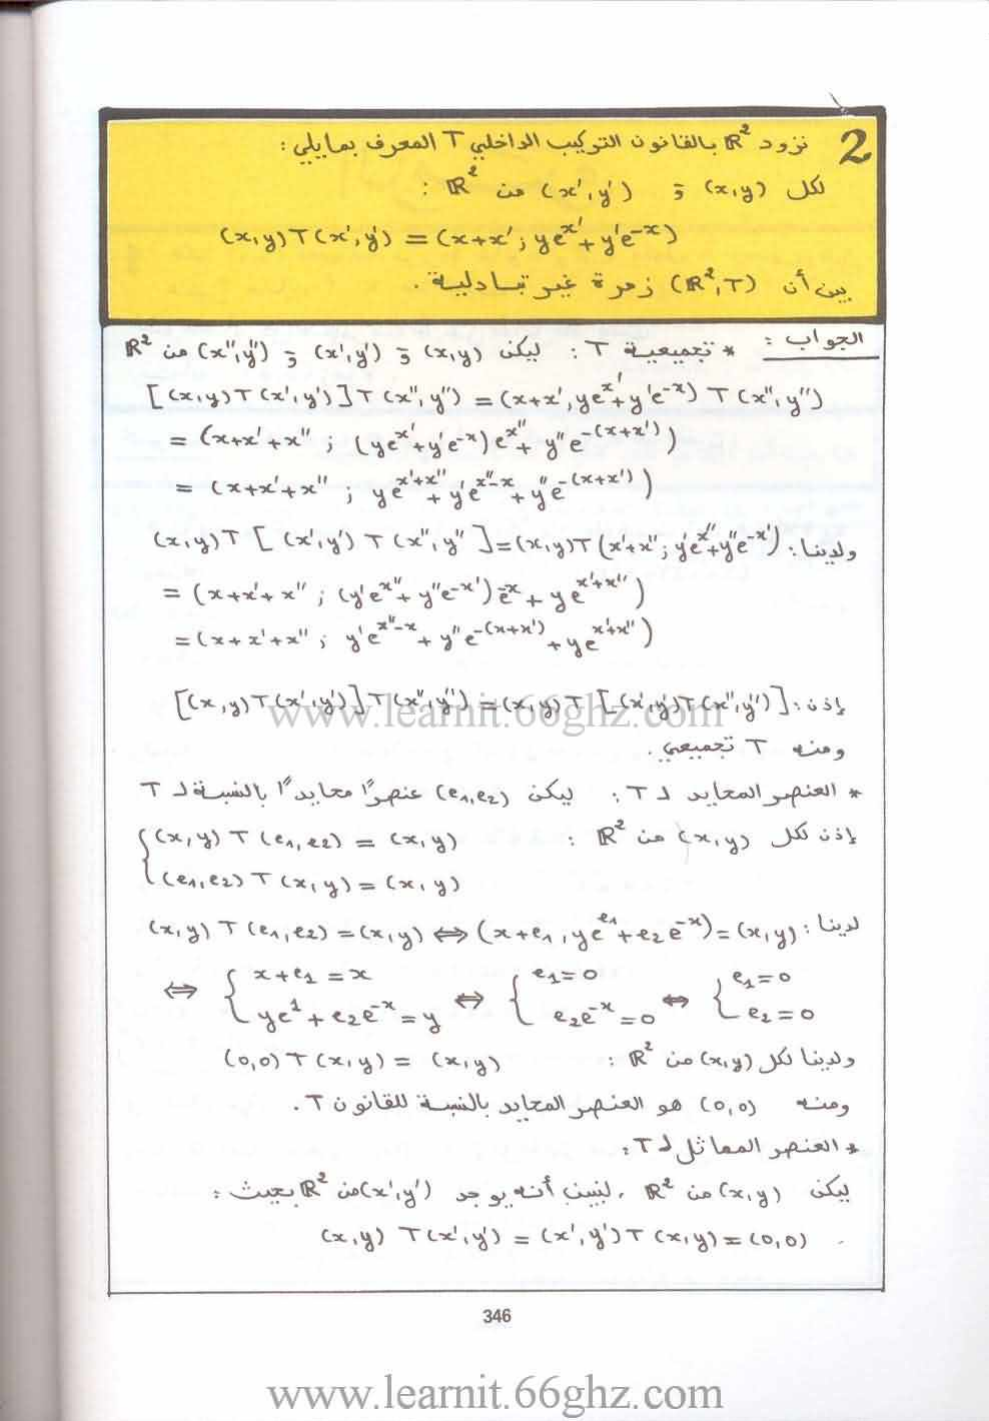 2 نزود ℝ² بالقانون التركيب الداخلي T المعرف بمايلي :
لكل (x,y) و (x',y') من ℝ² :
(x,y)T(x',y') = (x+x' ; ye^{x'}+y'e^{-x})
بين أن (ℝ²,T) زمرة غير تبادلية .
الجواب : * تجميعية T : ليكن (x,y) و (x',y') و (x'',y'') من ℝ²
[(x,y)T(x',y')]T(x'',y'') = (x+x', ye^{x'}+y'e^{-x}) T (x'',y'')
= (x+x'+x'' ; (ye^{x'}+y'e^{-x})e^{x''}+ y''e^{-(x+x')})
= (x+x'+x'' ; ye^{x'+x''}+y'e^{x''-x}+y''e^{-(x+x')})
ولدينا : (x,y)T[(x',y')T(x'',y'']=(x,y)T(x'+x'' ; y'e^{x''}+y''e^{-x'})
= (x+x'+x'' ; (y'e^{x''}+y''e^{-x'})e^{-x}+ye^{x'+x''})
= (x+x'+x'' ; y'e^{x''-x}+y''e^{-(x+x')}+ye^{x'+x''})
إذن : [(x,y)T(x',y')]T(x'',y'') = (x,y)T[(x',y')T(x'',y'')]
www.learnit.66ghz.com
ومنه T تجميعي .
* العنصر المحايد لـ T : ليكن (e₁,e₂) عنصرًا محايدًا بالنسبة لـ T
إذن لكل (x,y) من ℝ² : { (x,y) T (e₁,e₂) = (x,y)
(e₁,e₂) T (x,y) = (x,y)
لدينا : (x,y) T (e₁,e₂) = (x,y) ⇔ (x+e₁, ye^{e₁}+e₂e^{-x}) = (x,y)
⇔ { x+e₁ = x ⇔ { e₁=0 ⇔ { e₁=0
ye¹+e₂e^{-x}=y e₂e^{-x}=0 e₂=0
ولدينا لكل (x,y) من ℝ² : (0,0) T (x,y) = (x,y)
ومنه (0,0) هو العنصر المحايد بالنسبة للقانون T .
* العنصر المماثل لـ T :
ليكن (x,y) من ℝ² . لنبين أنه يوجد (x',y') من ℝ² بحيث :
(x,y) T(x',y') = (x',y')T (x,y) = (0,0) .
346
www.learnit.66ghz.com